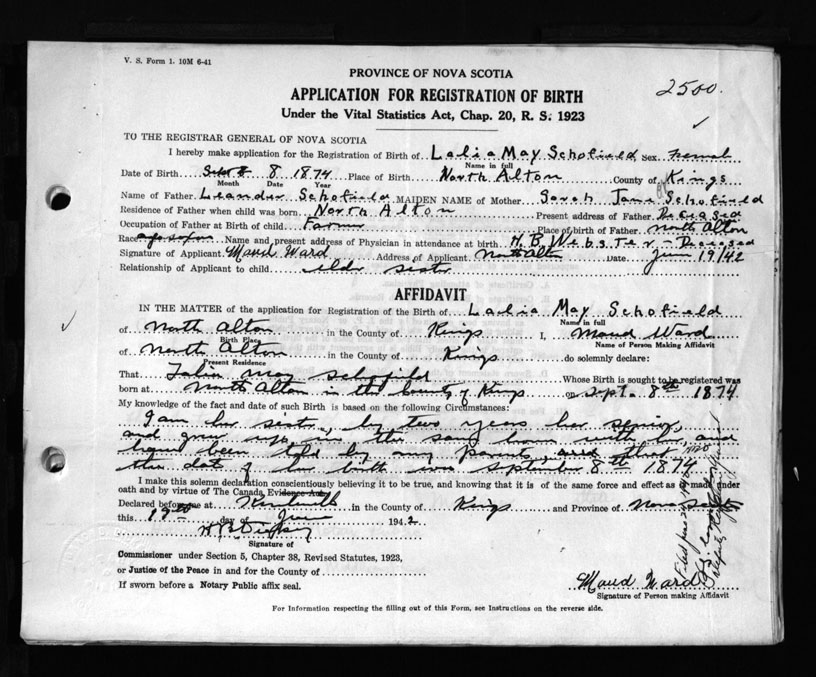 V. S. Form 1. 10M 6-41
PROVINCE OF NOVA SCOTIA
2500.
APPLICATION FOR REGISTRATION OF BIRTH
Under the Vital Statistics Act, Chap. 20, R. S. 1923
TO THE REGISTRAR GENERAL OF NOVA SCOTIA
I hereby make application for the Registration of Birth of Lalia May Schofield Sex Femal
Name in full
Date of Birth Sept 8 1874 Place of Birth North Alton County of Kings
Month Date Year
Name of Father Leander Schofield MAIDEN NAME of Mother Sarah Jane Schofield
Residence of Father when child was born North Alton Present address of Father
Occupation of Father at Birth of child Farmer Place of birth of Father North Alton
Race Name and present address of Physician in attendance at birth H. B. Webster - Deceased
Signature of Applicant Maud Ward Address of Applicant North Alton Date June 19/42
Relationship of Applicant to child sister
AFFIDAVIT
IN THE MATTER of the application for Registration of the Birth of Lalia May Schofield
Name in full
of North Alton in the County of Kings I, Maud Ward
Birth Place Name of Person Making Affidavit
of North Alton in the County of Kings do solemnly declare:
Present Residence
That May Schofield Whose Birth is sought to be registered was
born at North Alton in the County of Kings on Sept. 8th 1874
My knowledge of the fact and date of such Birth is based on the following Circumstances:
I am her sister, by two years her senior,
and grew up in the same home with her, and
have been told by my parents that
the date of her birth was September 8th 1874
I make this solemn declaration conscientiously believing it to be true, and knowing that it is of the same force and effect as if made under
oath and by virtue of The Canada Evidence Act.
Declared before me at Kentville in the County of Kings and Province of Nova Scotia
this 19th day of June 1942
Signature of
Commissioner under Section 5, Chapter 38, Revised Statutes, 1923,
or Justice of the Peace in and for the County of
If sworn before a Notary Public affix seal.
Maud Ward
Signature of Person making Affidavit
For Information respecting the filling out of this Form, see Instructions on the reverse side.